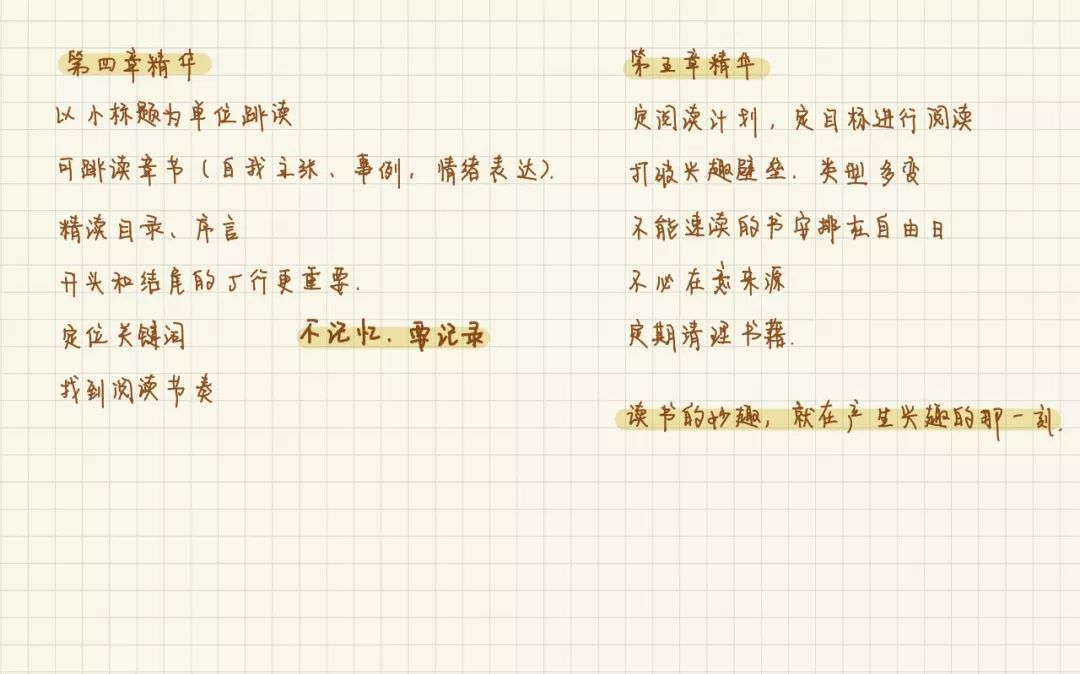 第四章精华
以小标题为单位跳读
可跳读章节（自我主张、事例，情绪表达）.
精读目录、序言
开头和结尾的5行更重要.
定位关键词
不记忆、要记录
找到阅读节奏
第五章精华
定阅读计划，定目标进行阅读
打破兴趣壁垒.类型多变
不能速读的书安排在自由日
不必在意来源
定期清理书籍.
读书的妙趣，就在产生兴趣的那一刻.